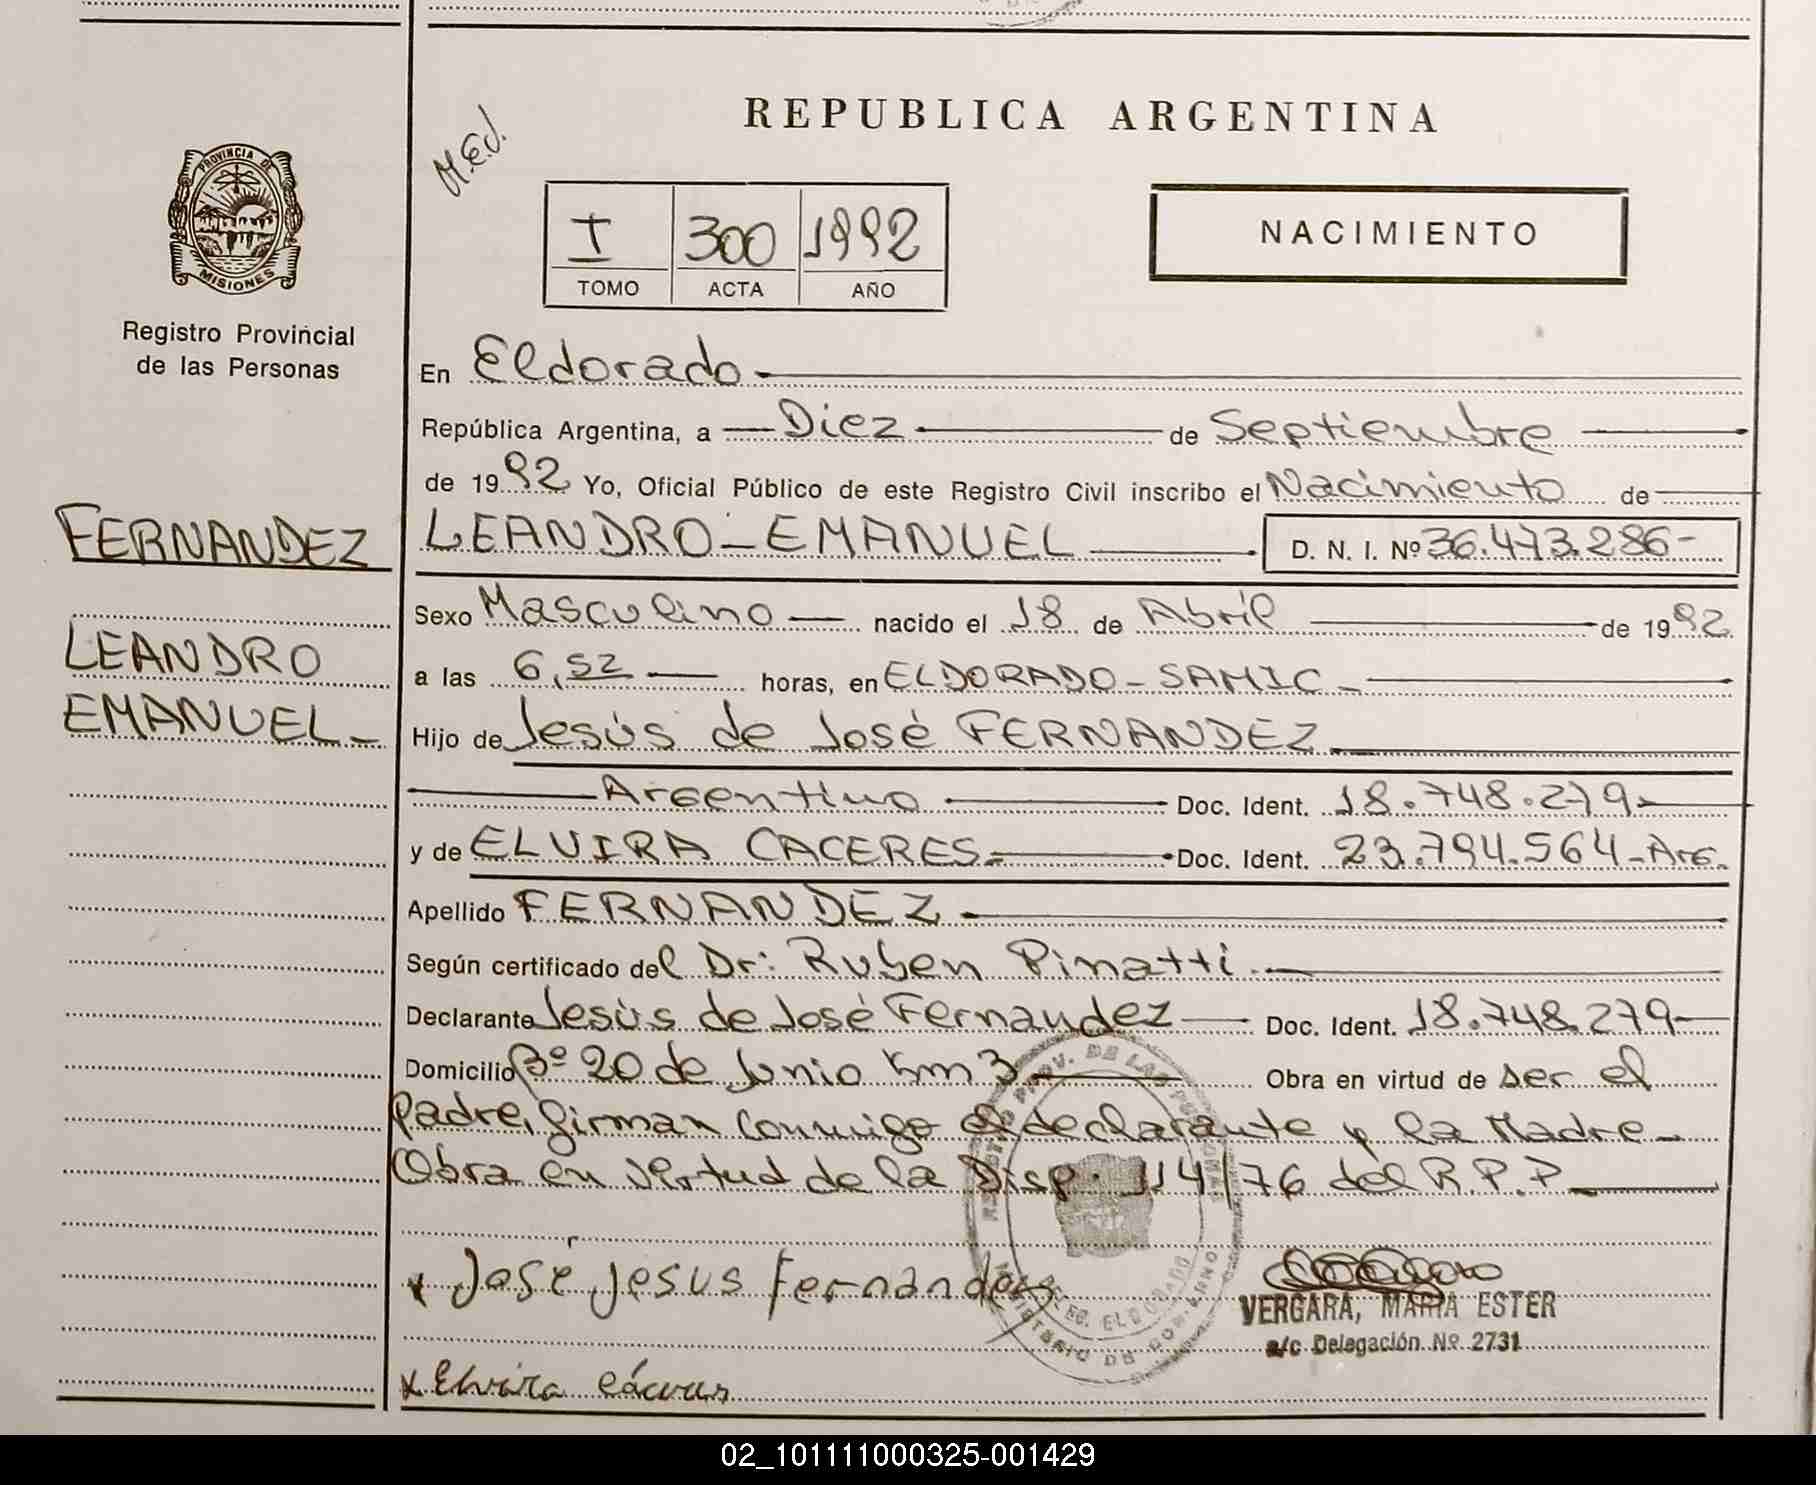 REPUBLICA ARGENTINA
M.E.J.
PROVINCIA DE
MISIONES
I 300 1992
TOMO ACTA AÑO
NACIMIENTO
Registro Provincial
de las Personas
FERNANDEZ
LEANDRO
EMANUEL_
En Eldorado
República Argentina, a Diez de Septiembre
de 1992 Yo, Oficial Público de este Registro Civil inscribo el Nacimiento de
LEANDRO-EMANUEL D. N. I. Nº 36.473.286-
Sexo Masculino nacido el 18 de Abril de 1992.
a las 6,52 horas, en ELDORADO-SAMIC-
Hijo de Jesús de José FERNANDEZ
Argentino Doc. Ident. 18.748.279-
y de ELVIRA CACERES= Doc. Ident. 23.794.564-Arg.
Apellido FERNANDEZ
Según certificado del Dr: Ruben Pinatti.
Declarante Jesús de José Fernandez Doc. Ident. 18.748.279-
Domicilio Bº 20 de Junio Km 3 Obra en virtud de ser el
Padre, firman conmigo el declarante y la Madre-
Obra en virtud de la Disp. 114/76 del R.P.P
x José Jesus Fernandez
VERGARA, MARIA ESTER
a/c Delegación Nº 2731
x Elvira
02_101111000325-001429